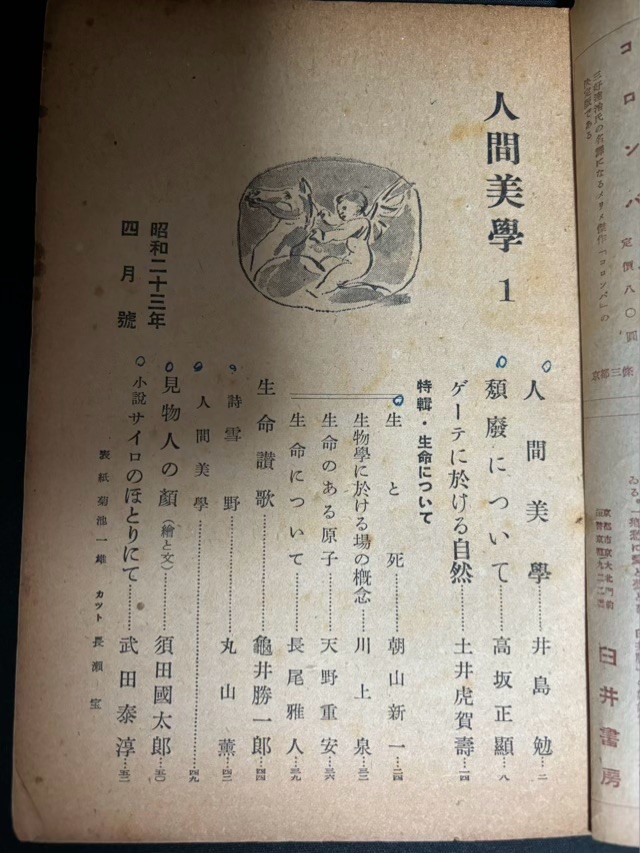 コロンバ 定價八〇圓
京都三條
臼井書房
人間美學 1
昭和二十三年
四月號
人間美學……井島勉…二
頽廢について……高坂正顯…八
ゲーテに於ける自然……土井虎賀壽…一四
特輯・生命について
生と死……朝山新一…二四
生物學に於ける場の概念……川上泉…三二
生命のある原子……天野重安…三六
生命について……長尾雅人…三九
生命讃歌……龜井勝一郎…四四
詩 雪野……丸山薫…四二
人間美學……四九
見物人の顏(繪と文)……須田國太郎…五〇
小説 サイロのほとりにて……武田泰淳…五二
表紙 菊池一雄 カット 長瀬宝